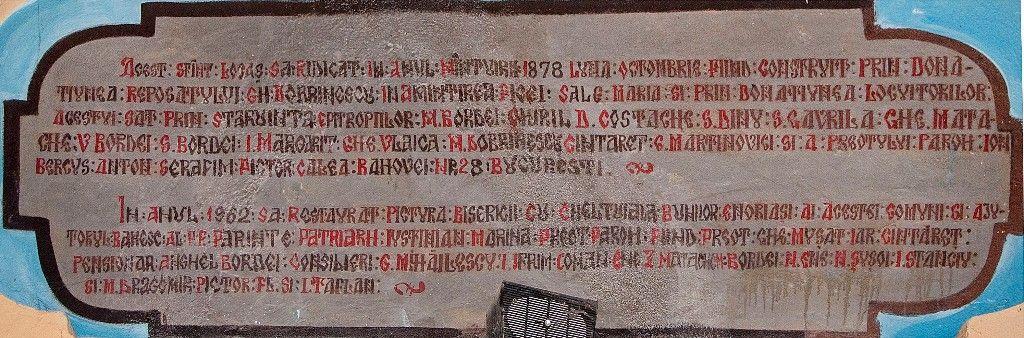 ACEST: SFÎNT: LOCAȘ: SA: RIDICAT: IN: ANUL: MÎNTUIRII: 1878 LUNA: OCTOMBRIE: FIIND: CONSTRUIT: PRIN: DONA-
ȚIUNEA: REPOSATULUI: GH: DOBRINESCU: IN: AMINTIREA: FIICEI: SALE: MARIA: SI: PRIN: DONAȚIUNEA: LOCUITORILOR:
ACESTUI: SAT: PRIN: STARUINȚA: EPITROPILOR: M. BORDEI: GHURIL D. COSTACHE: S. DINU: S. GAVRILA: GHE. MATA-
CHE: V BORDEI: S. BORDEI: I. MARGARIT: GHE. VLAICA: M. DOBRINESCU CINTAREȚ: G. MARTINOVICI SI: A: PREOTULUI: PAROH: ION
BERCUS: ANTON: SERAFIM: PICTOR: CALEA: RAHOVEI: NR 28: BUCUREȘTI.
IN: ANUL: 1962: SA: RESTAURAT: PICTURA: BISERICII: CU: CHELTUIALA: BUNILOR: ENORIASI: AI: ACESTEI: COMUNI: SI: AJU-
TORUL: BANESC: AL: P.F. PARINTE: PATRIARH: IUSTINIAN: MARINA: PREOT: PAROH: FIIND: PREOT: GHE. MUSAT: IAR: CINTAREȚ:
PENSIONAR: ANGHEL: BORDEI: CONSILIERI: G. MIHAILESCU: I. IFRIM: COMAN: GHE. I. MATACHE: BORDEI: N. GHE. N. SUSOI: I. STANCIU:
SI: M. DRAGOMIR: PICTOR: FL. SI: I. TAFLAN: